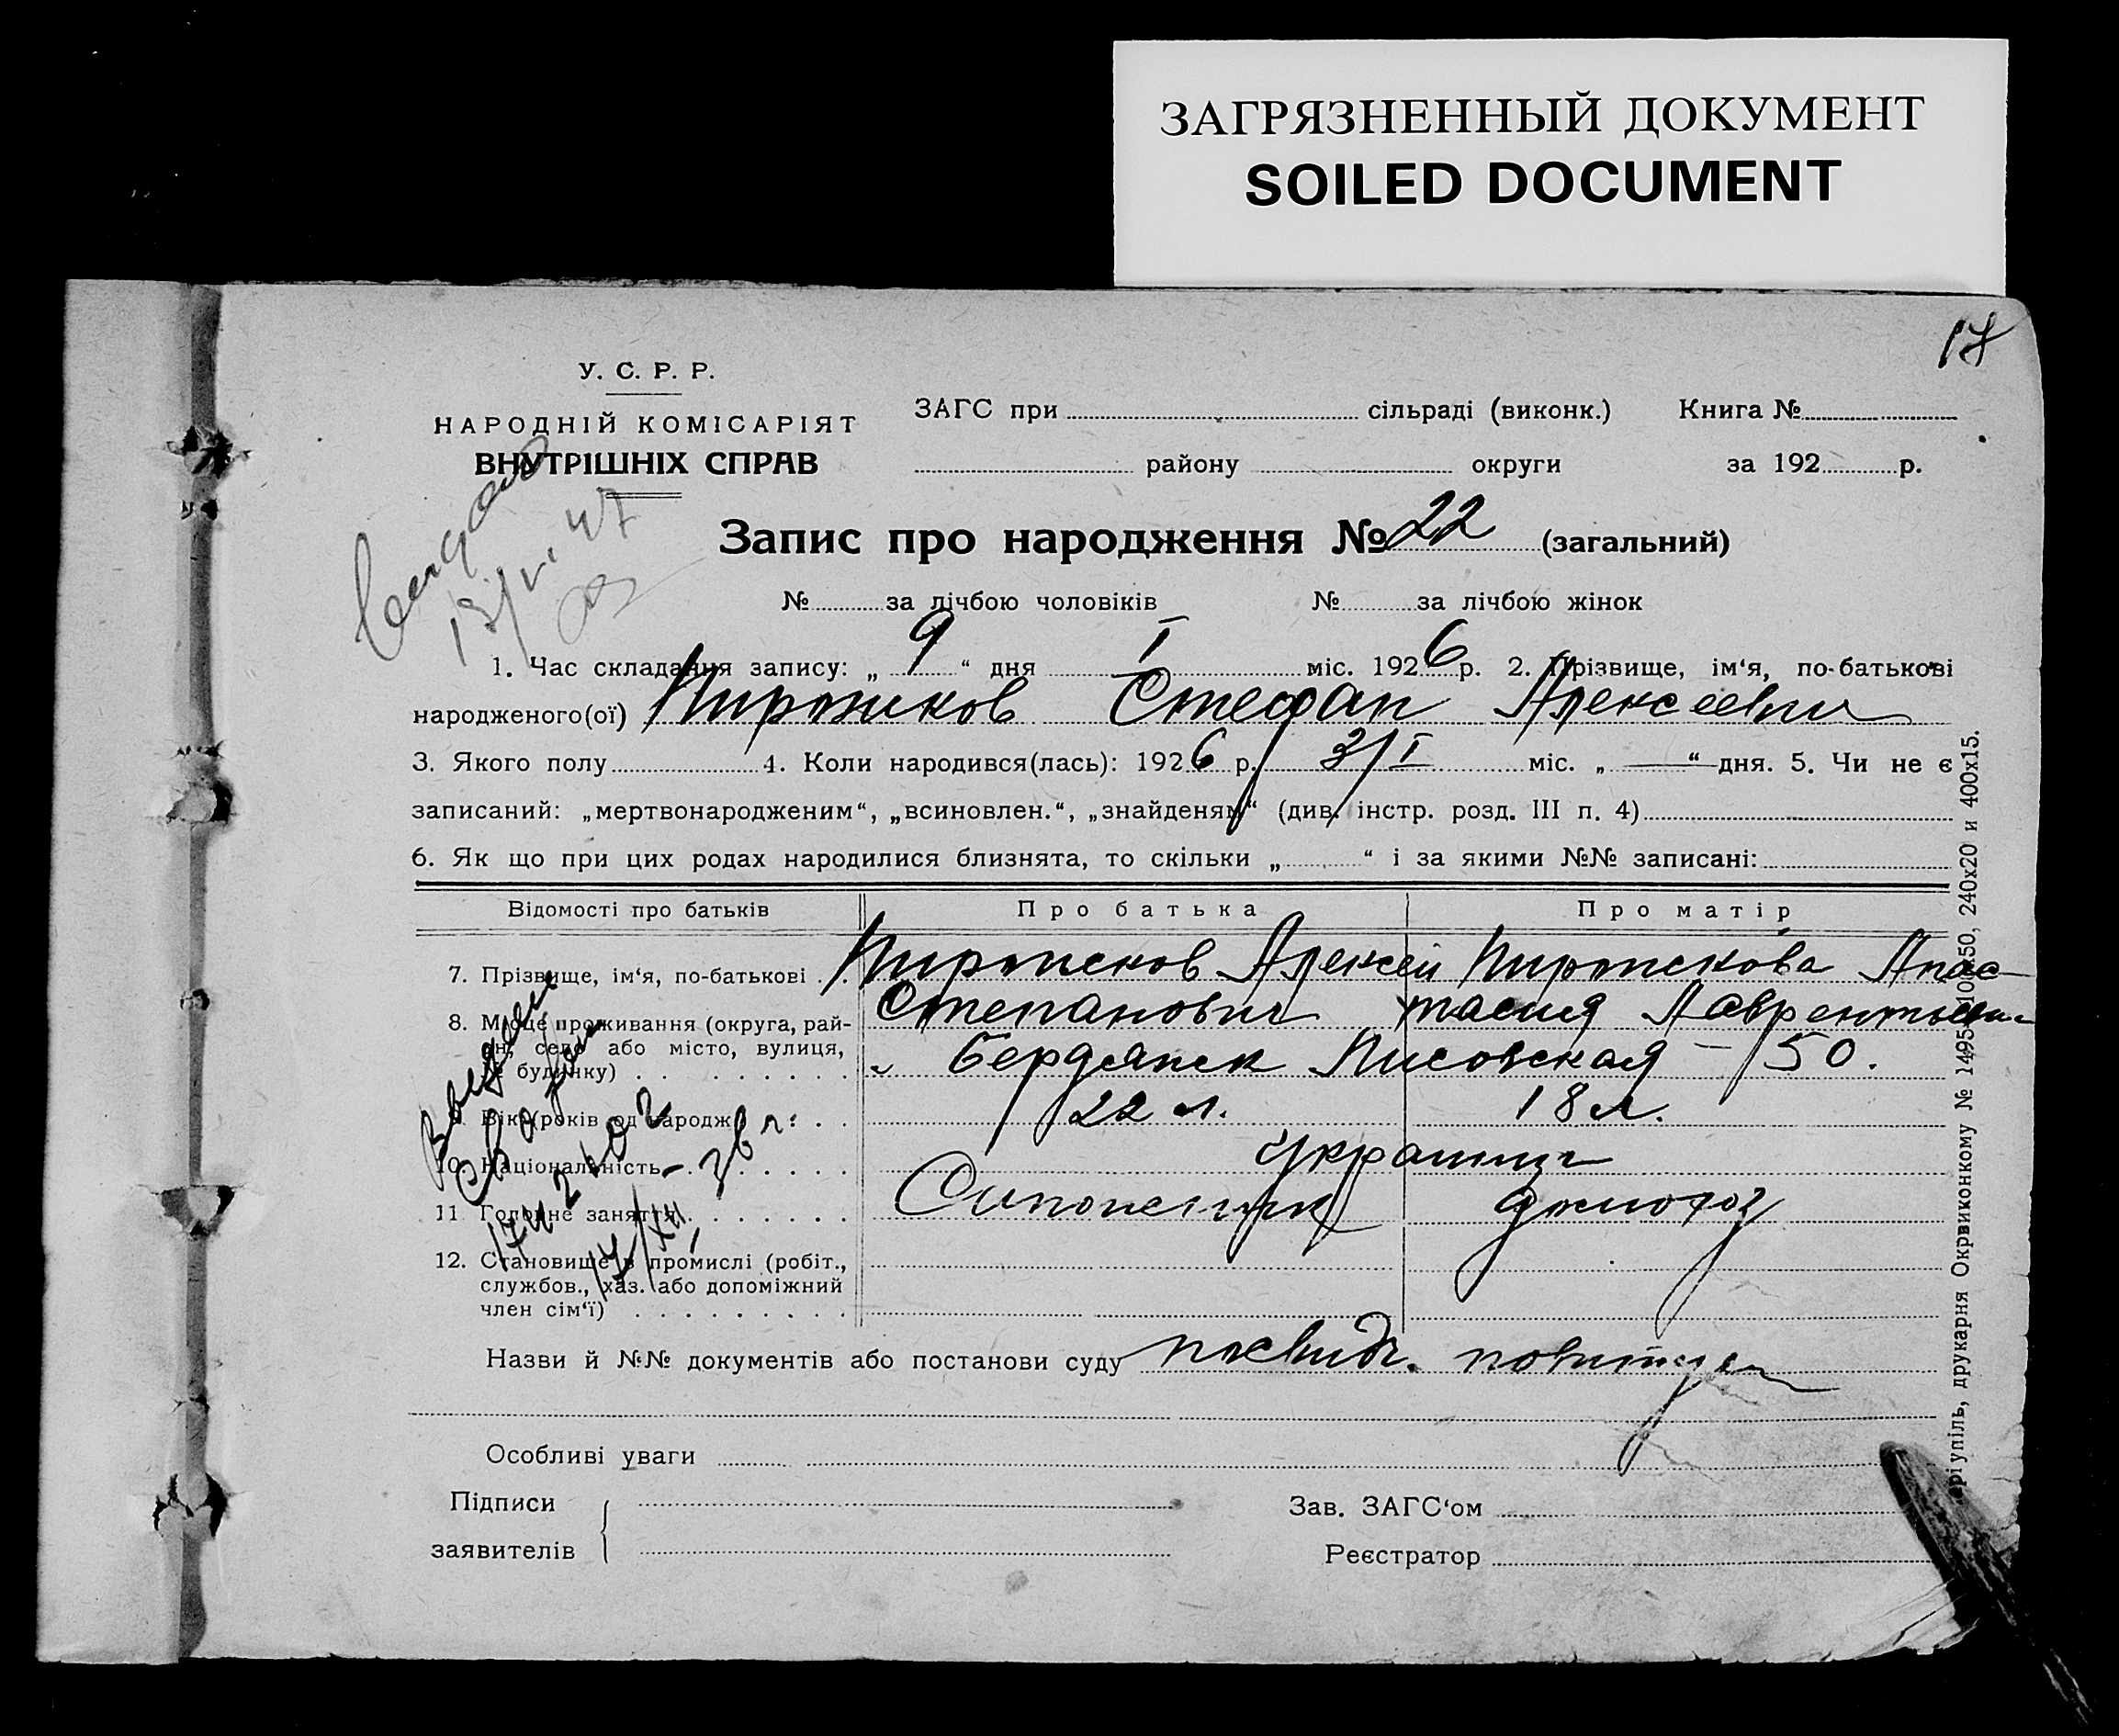 ЗАГРЯЗНЕННЫЙ ДОКУМЕНТ
SOILED DOCUMENT
17
У. С. Р. Р.
НАРОДНІЙ КОМІСАРІЯТ
ВНУТРІШНІХ СПРАВ
ЗАГС при сільраді (виконк.) Книга №
району округи за 192 р.
Запис про народження № 22 (загальний)
№ за лічбою чоловіків № за лічбою жінок
1. Час складання запису: „ 9 “ дня I міс. 1926 р. 2. Прізвище, ім‘я, по-батькові
народженого(ої) Пирожков Стефан Алексеевич
3. Якого полу 4. Коли народився(лась): 1926 р. 3/I міс. „ — “ дня. 5. Чи не є
записаний: „мертвонародженим“, „всиновлен.“, „знайденям“ (див. інстр. розд. III п. 4)
6. Як що при цих родах народилися близнята, то скільки „ “ і за якими №№ записані:
Відомості про батьків Про батька Про матір
7. Прізвище, ім‘я, по-батькові Пирожков Алексей Пирожкова Анас-
Степанович тасия Лаврентьевн
8. Місце проживання (округа, рай-
он, село або місто, вулиця,
№ будинку) Бердянск Лисовская – 50.
Вік (років од народж.) 22 л. 18 л.
10. Національність Украинцы
11 Головне заняття домохоз
12. Становище в промислі (робіт.,
службов., хаз. або допоміжний
член сім‘ї)
Назви й №№ документів або постанови суду посвидч.
Особливі уваги
Підписи
заявителів
Зав. ЗАГС‘ом
Реєстратор
13/VI 47
17/XII – 36 г.
ріупіль, друкарня Окрвиконкому № 1495-10050, 240х20 и 400х15.